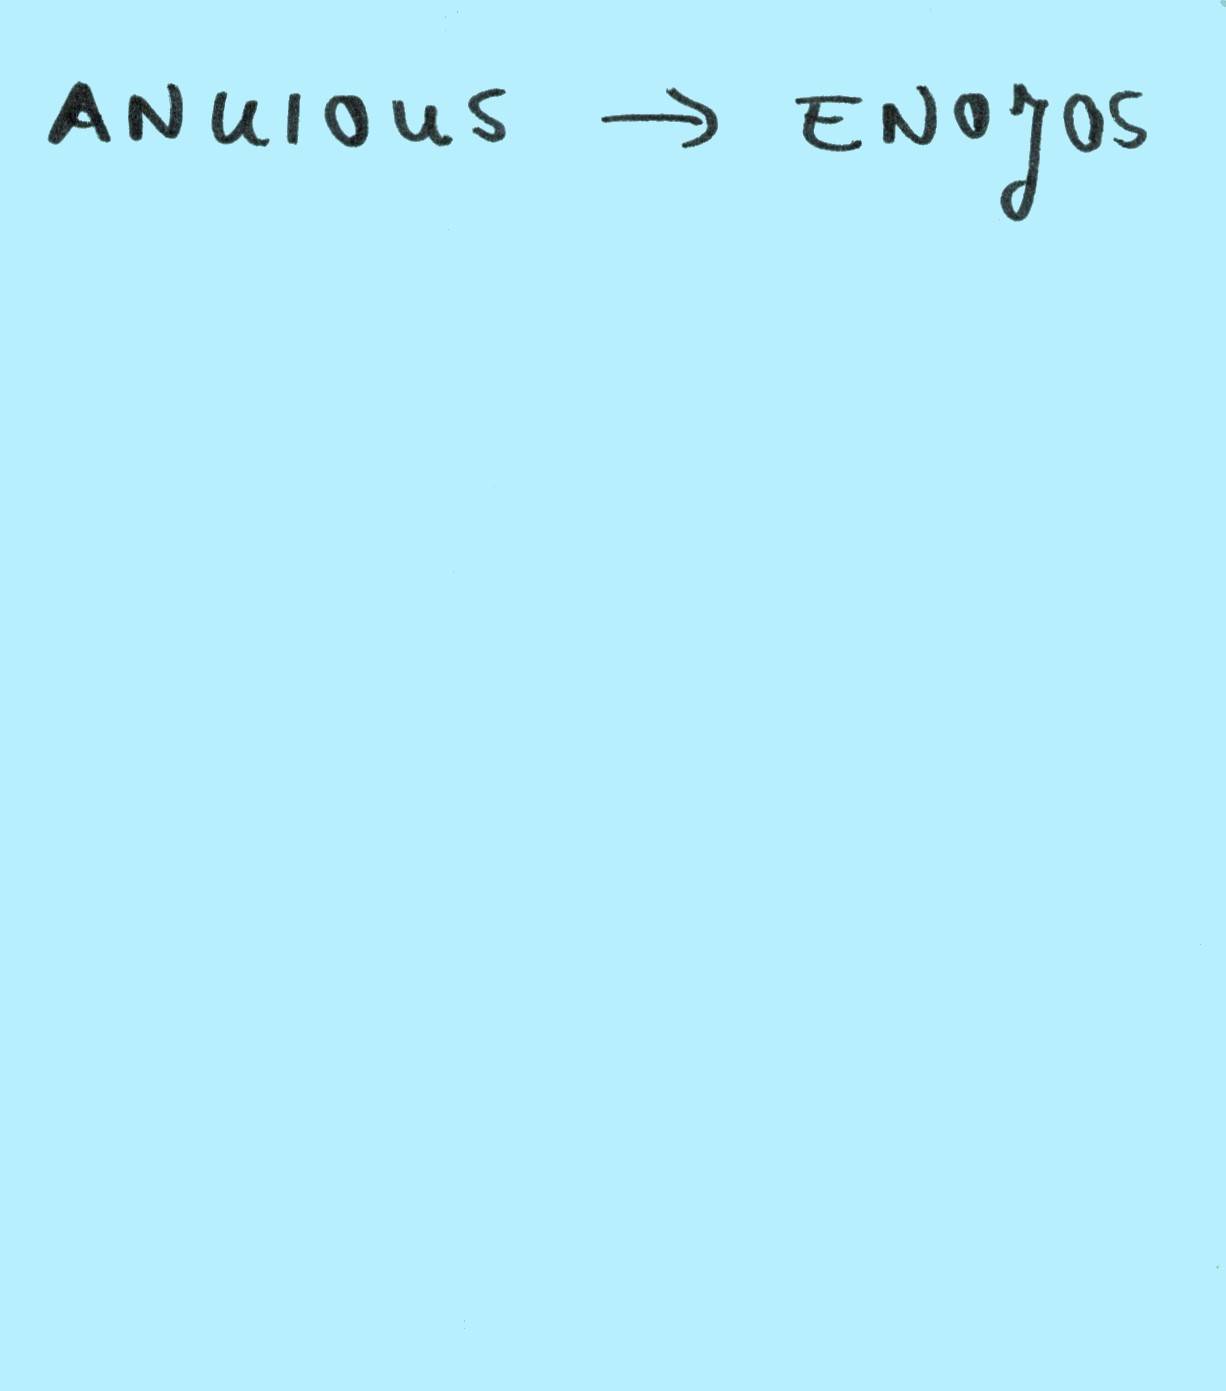 ANUIOUS → ENOJOS